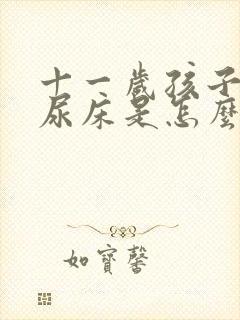 十一歲孩子
尿床是怎麼
如寶馨